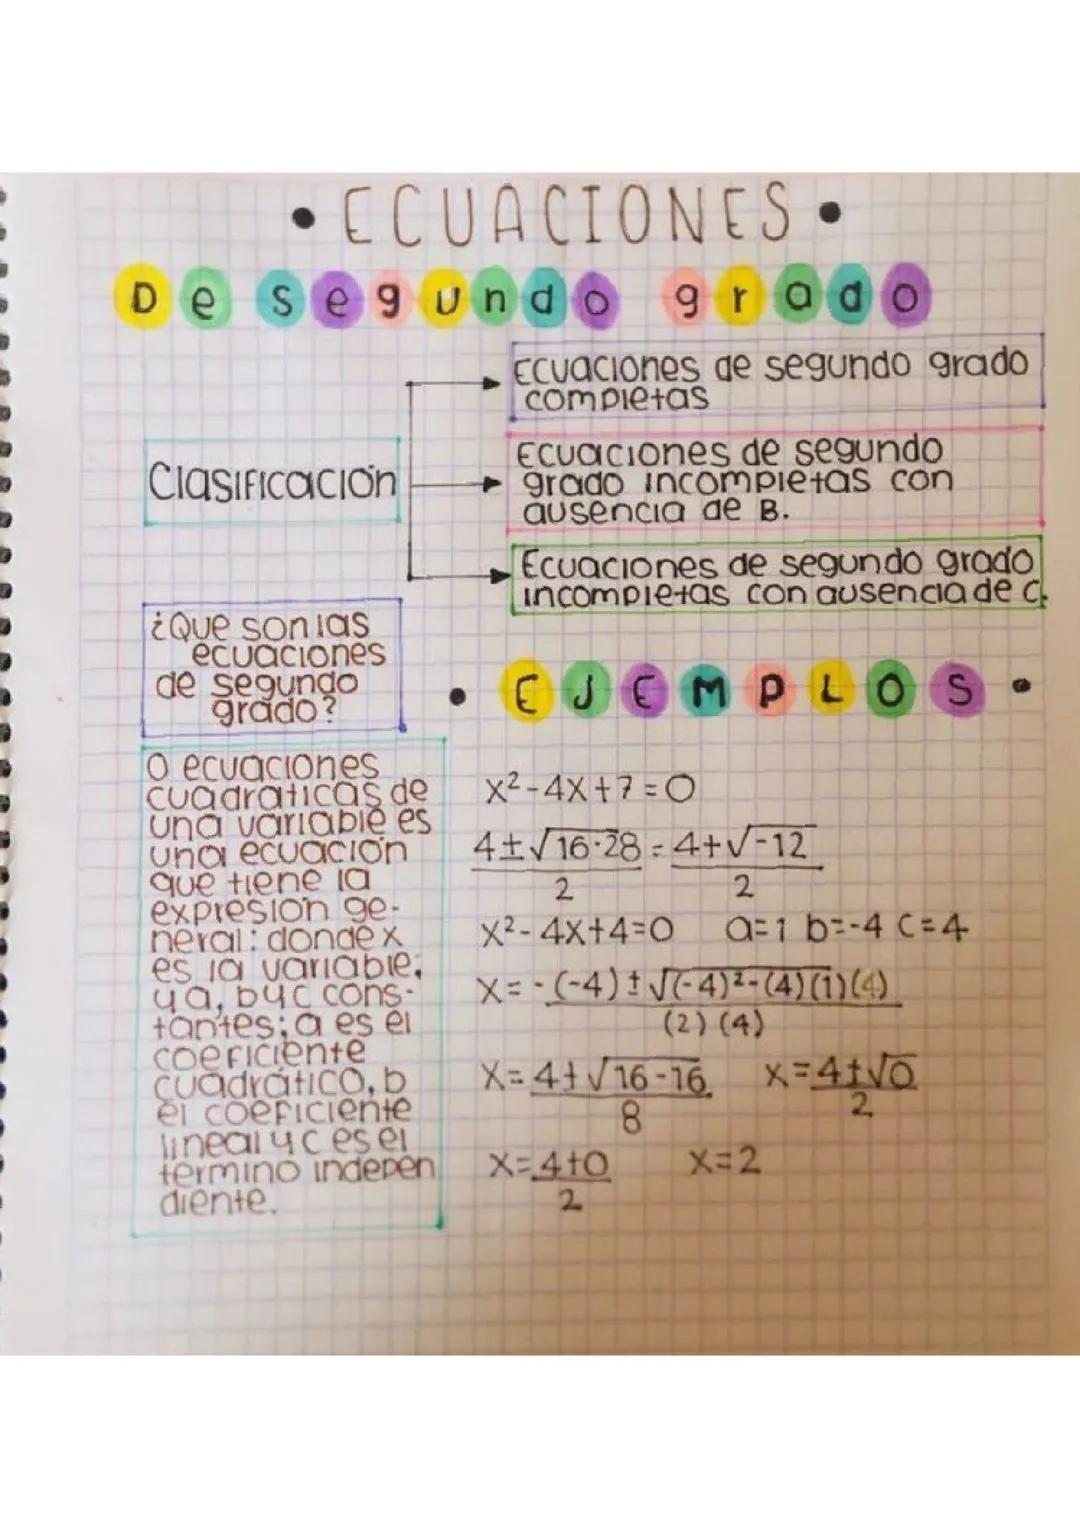 • ECUACIONES •
De segundo grado
Ecuaciones de segundo grado
completas
Clasificación
Ecuaciones de segundo
grado incompletas con
ausencia de B.
Ecuaciones de segundo grado
incompletas con ausencia de C.
¿Que son las
ecuaciones
de segundo
grado?
O ecuaciones
cuadraticas de
una variable es
una ecuación
que tiene la
expresión ge-
neral: donde x
es la variable,
y a, b y c cons-
tantes; a es el
coeficiente
cuadrático, b
el coeficiente
lineal y c es el
termino indepen
diente.
• EJEMPLOS •
x²-4x+7=0
4±√16-28 = 4+√-12
2 2
x²-4x+4=0 a=1 b=-4 c=4
x=-(-4)±√(-4)²-(4)(1)(4)
(2)(4)
x=4+√16-16 x=4±√0
8 2
x=4+0 x=2
2